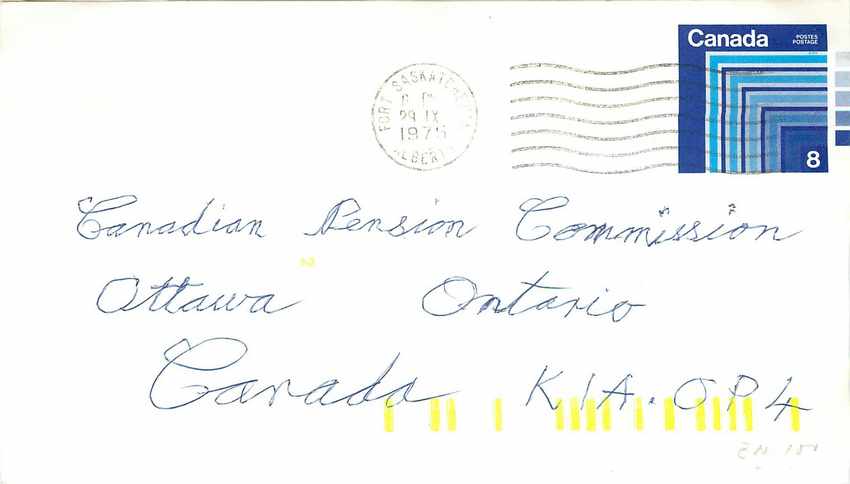 Canada POSTES
POSTAGE
8
FORT SASKATCHEWAN
29 IX
1975
ALBERTA
Canadian Pension Commission
2
Ottawa Ontario
Canada K1A.0P4